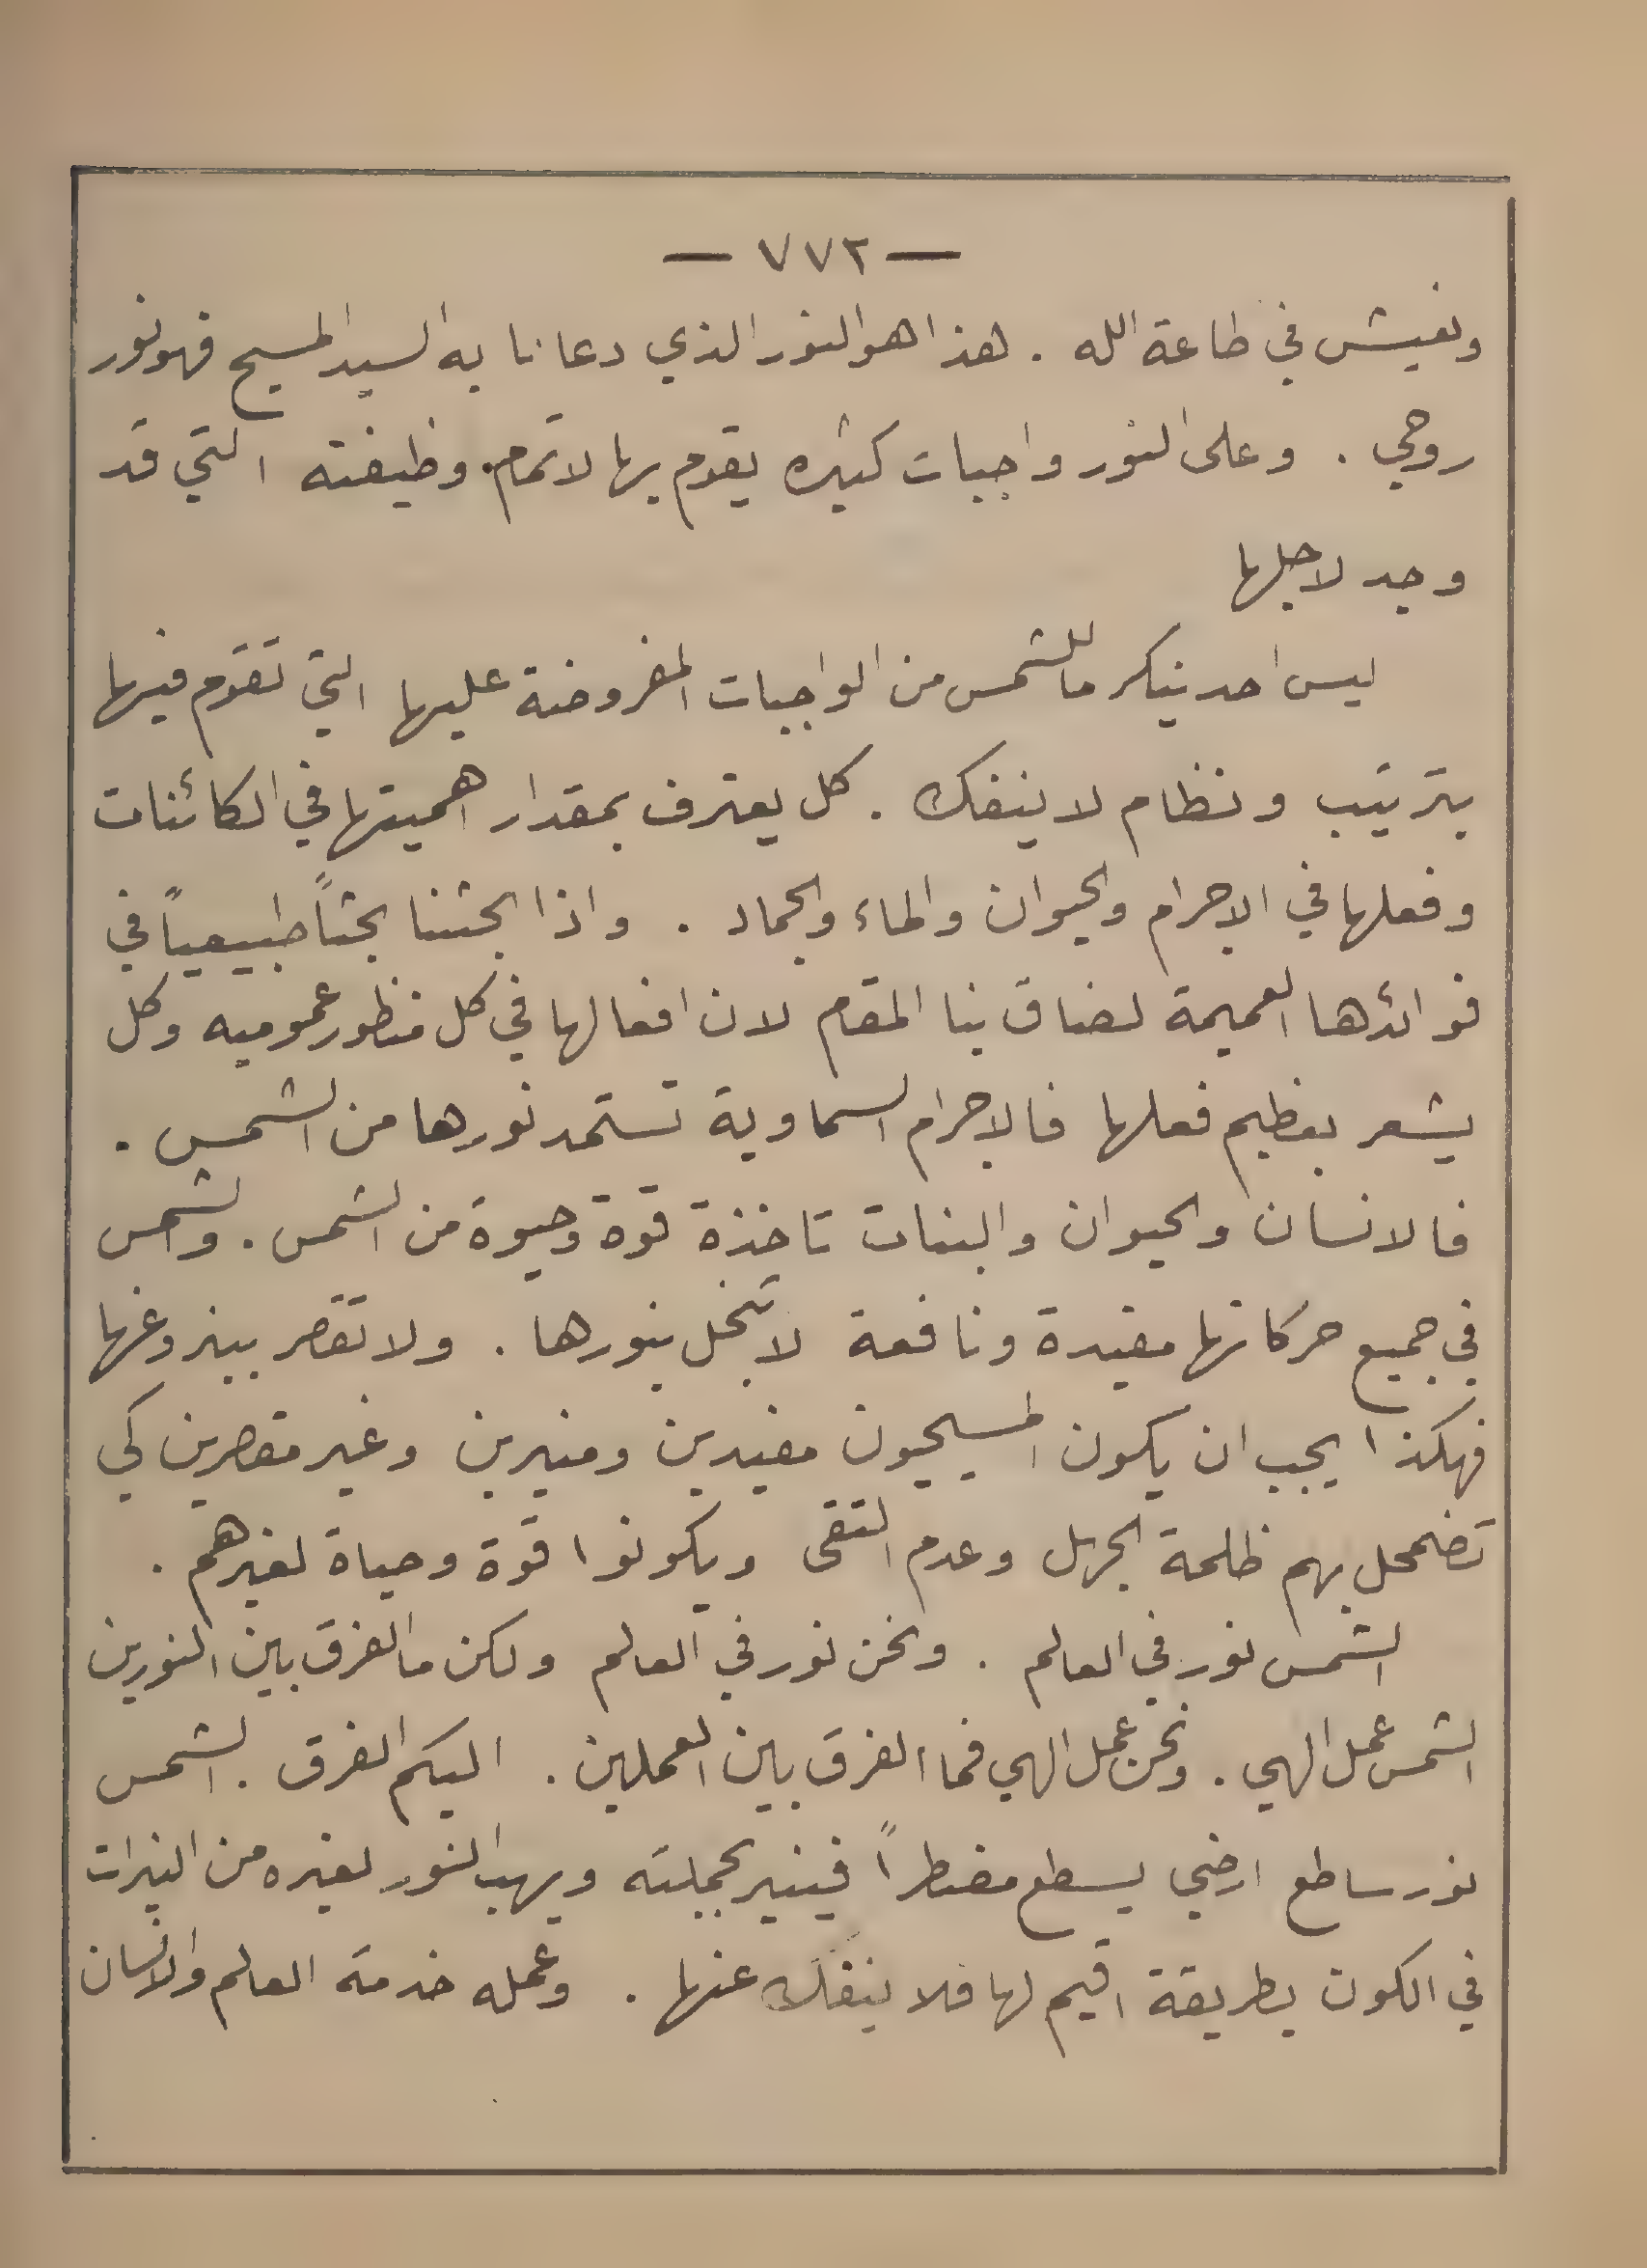 — ٧٧٢ —
ونعيش في طاعة الله . هذا هو النور الذي دعانا به السيد المسيح فهو نور
روحي . وعلى النور واجبات كثيره يقوم بها لاتمام وظيفته التي قد
وجد لاجلها
ليس احد ينكر ما للشمس من الواجبات المفروضة عليها التي تقوم فيها
بترتيب ونظام لا ينفك . كل يعترف بمقدار اهميتها في الكائنات
وفعلها في الاجرام والحيوان والماء والجماد . واذا بحثنا بحثاً طبيعياً في
فوائدها العميمة لضاق بنا المقام لان افعالها في كل منظور عموميه وكل
يشعر بعظيم فعلها فالاجرام السماوية تستمد نورها من الشمس .
فالانسان والحيوان والنبات تاخذة قوة وحيوة من الشمس . والشمس
في جميع حركاتها مفيدة ونافعة لا تبخل بنورها . ولا تقصر ببزوغها
فهكذا يجب ان يكون المسيحيون مفيدين ومنيرين وغير مقصرين كي
تضمحل بهم ظلمة الجهل وعدم التقى ويكونوا قوة وحياة لغيرهم .
الشمس نور في العالم . ونحن نور في العالم ولكن ما الفرق بين النورين
الشمس عمل الهي . ونحن عمل الهي فما الفرق بين العملين . اليكم الفرق . الشمس
نور ساطع ارضي يسطع مضطراً فينير بجملته ويهب النور لغيره من النيرات
في الكون بطريقة اقيم لها فلا ينفك عنها . وعمله خدمة العالم والانسان